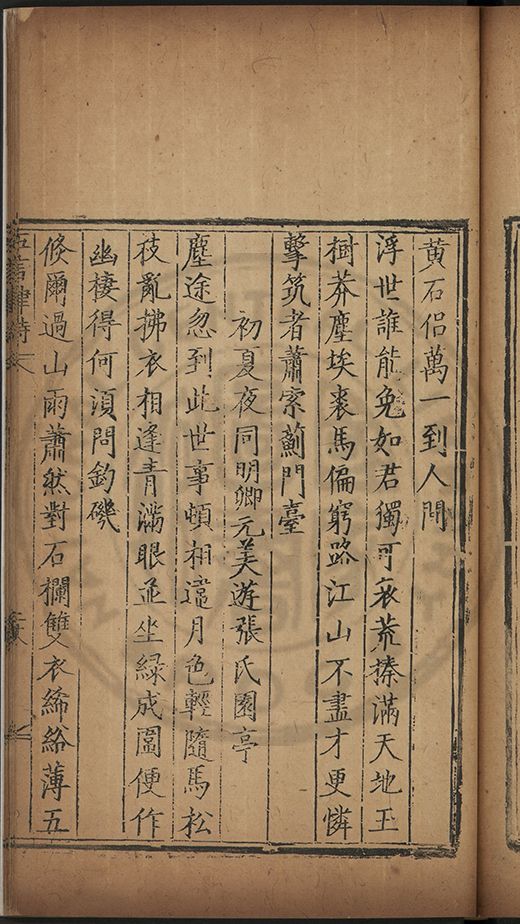 黄石侣萬一到人間
浮世誰能免如君獨可哀荒榛滿天地玉
樹莽塵埃裘馬偏窮路江山不盡才更憐
擊筑者蕭索薊門臺
初夏夜同明卿元美遊張氏園亭
塵途忽到此世事頓相違月色輕隨馬松
枝亂拂衣相逢青滿眼並坐緑成圍便作
幽棲得何須問釣磯
倐爾過山雨蕭然對石欄雙衣絺綌薄五
五言律詩